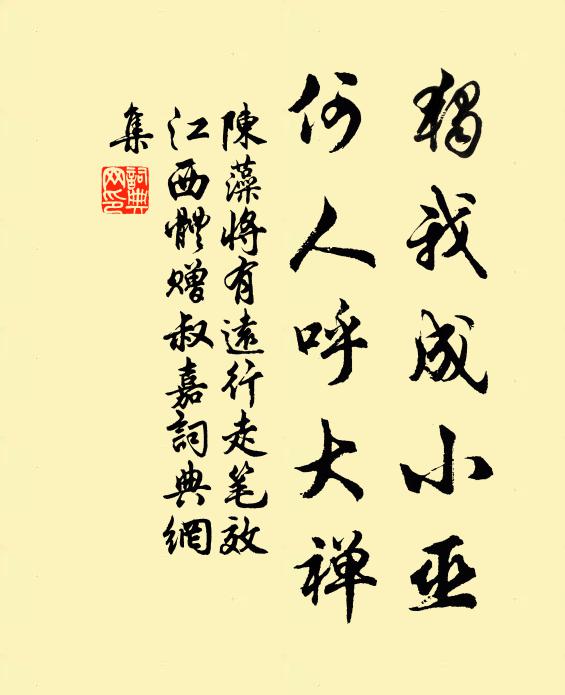 獨我成小巫
何人呼大禅
陳藻将有遠行走笔效
江西體赠叔嘉詞典網
集
詞典网印